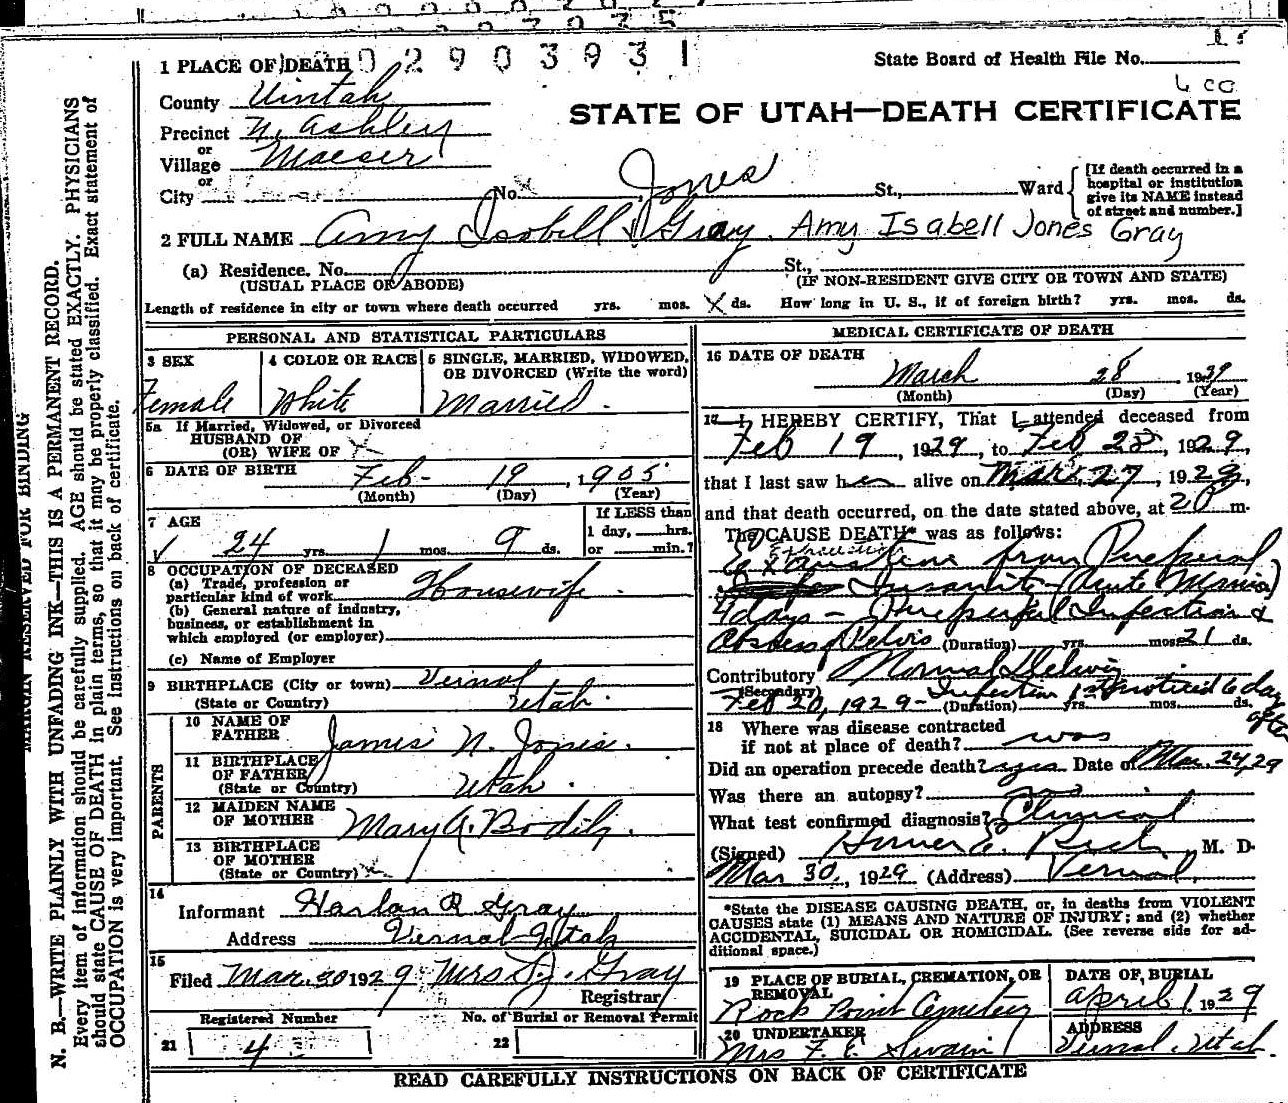 1 PLACE OF DEATH 02903931
State Board of Health File No.
County Uintah
STATE OF UTAH—DEATH CERTIFICATE
Precinct N. Ashley
or
Village Maeser
or
City No. St., Ward
[If death occurred in a hospital or institution give its NAME instead of street and number.]
Jones
2 FULL NAME Amy Isobell Gray. Amy Isabell Jones Gray
(a) Residence. No. St.,
(USUAL PLACE OF ABODE) (IF NON-RESIDENT GIVE CITY OR TOWN AND STATE)
Length of residence in city or town where death occurred yrs. mos. X ds. How long in U. S., if of foreign birth? yrs. mos. ds.
PERSONAL AND STATISTICAL PARTICULARS
3 SEX Female
4 COLOR OR RACE White
5 SINGLE, MARRIED, WIDOWED, OR DIVORCED (Write the word) Married.
5a If Married, Widowed, or Divorced
HUSBAND OF
(OR) WIFE OF X
6 DATE OF BIRTH Feb- 19, 1905
(Month) (Day) (Year)
7 AGE
24 yrs. 1 mos. 9 ds.
If LESS than 1 day, hrs. or min.?
8 OCCUPATION OF DECEASED
(a) Trade, profession or particular kind of work Housewife.
(b) General nature of industry, business, or establishment in which employed (or employer)
(c) Name of Employer
9 BIRTHPLACE (City or town) Vernal
(State or Country) Utah.
PARENTS
10 NAME OF FATHER James N. Jones.
11 BIRTHPLACE OF FATHER (State or Country) Utah.
12 MAIDEN NAME OF MOTHER Mary A. Bodily.
13 BIRTHPLACE OF MOTHER (State or Country) X
14
Informant Harlan R Gray
Address Vernal Utah
15
Filed Mar. 30 1929 Mrs S. J. Gray
Registrar
Registered Number No. of Burial or Removal Permit
21 4 22
MEDICAL CERTIFICATE OF DEATH
16 DATE OF DEATH
March 28, 1929
(Month) (Day) (Year)
17 I HEREBY CERTIFY, That I attended deceased from
Feb 19, 1929, to Feb 28, 1929,
that I last saw her alive on Mar. 27, 1929,
and that death occurred, on the date stated above, at 20 m.
The CAUSE DEATH* was as follows:
Exhaustion
from Puerperal
Insanity (Acute Mania)
4 days - Puerperal Infection &
Abscess Pelvis (Duration) yrs. mos. 21 ds.
Contributory Normal Delivery
(Secondary) Feb 20, 1929 - Infection 1st noticed 6 days after
(Duration) yrs. mos. ds.
18 Where was disease contracted
if not at place of death? was
Did an operation precede death? yes Date of Mar. 24, 29
Was there an autopsy? no
What test confirmed diagnosis? Clinical
(Signed) Homer E. Rich, M. D.
Mar 30, 1929 (Address) Vernal
*State the DISEASE CAUSING DEATH, or, in deaths from VIOLENT
CAUSES state (1) MEANS AND NATURE OF INJURY; and (2) whether
ACCIDENTAL, SUICIDAL OR HOMICIDAL. (See reverse side for ad-
ditional space.)
19 PLACE OF BURIAL, CREMATION, OR REMOVAL DATE OF BURIAL
Rock Point Cemetery April 1, 1929
20 UNDERTAKER ADDRESS
Mrs F. E. Swain Vernal, Utah.
READ CAREFULLY INSTRUCTIONS ON BACK OF CERTIFICATE
MARGIN RESERVED FOR BINDING
N. B.—WRITE PLAINLY WITH UNFADING INK—THIS IS A PERMANENT RECORD.
Every item of information should be carefully supplied. AGE should be stated EXACTLY. PHYSICIANS
should state CAUSE OF DEATH in plain terms, so that it may be properly classified. Exact statement of
OCCUPATION is very important. See instructions on back of certificate.